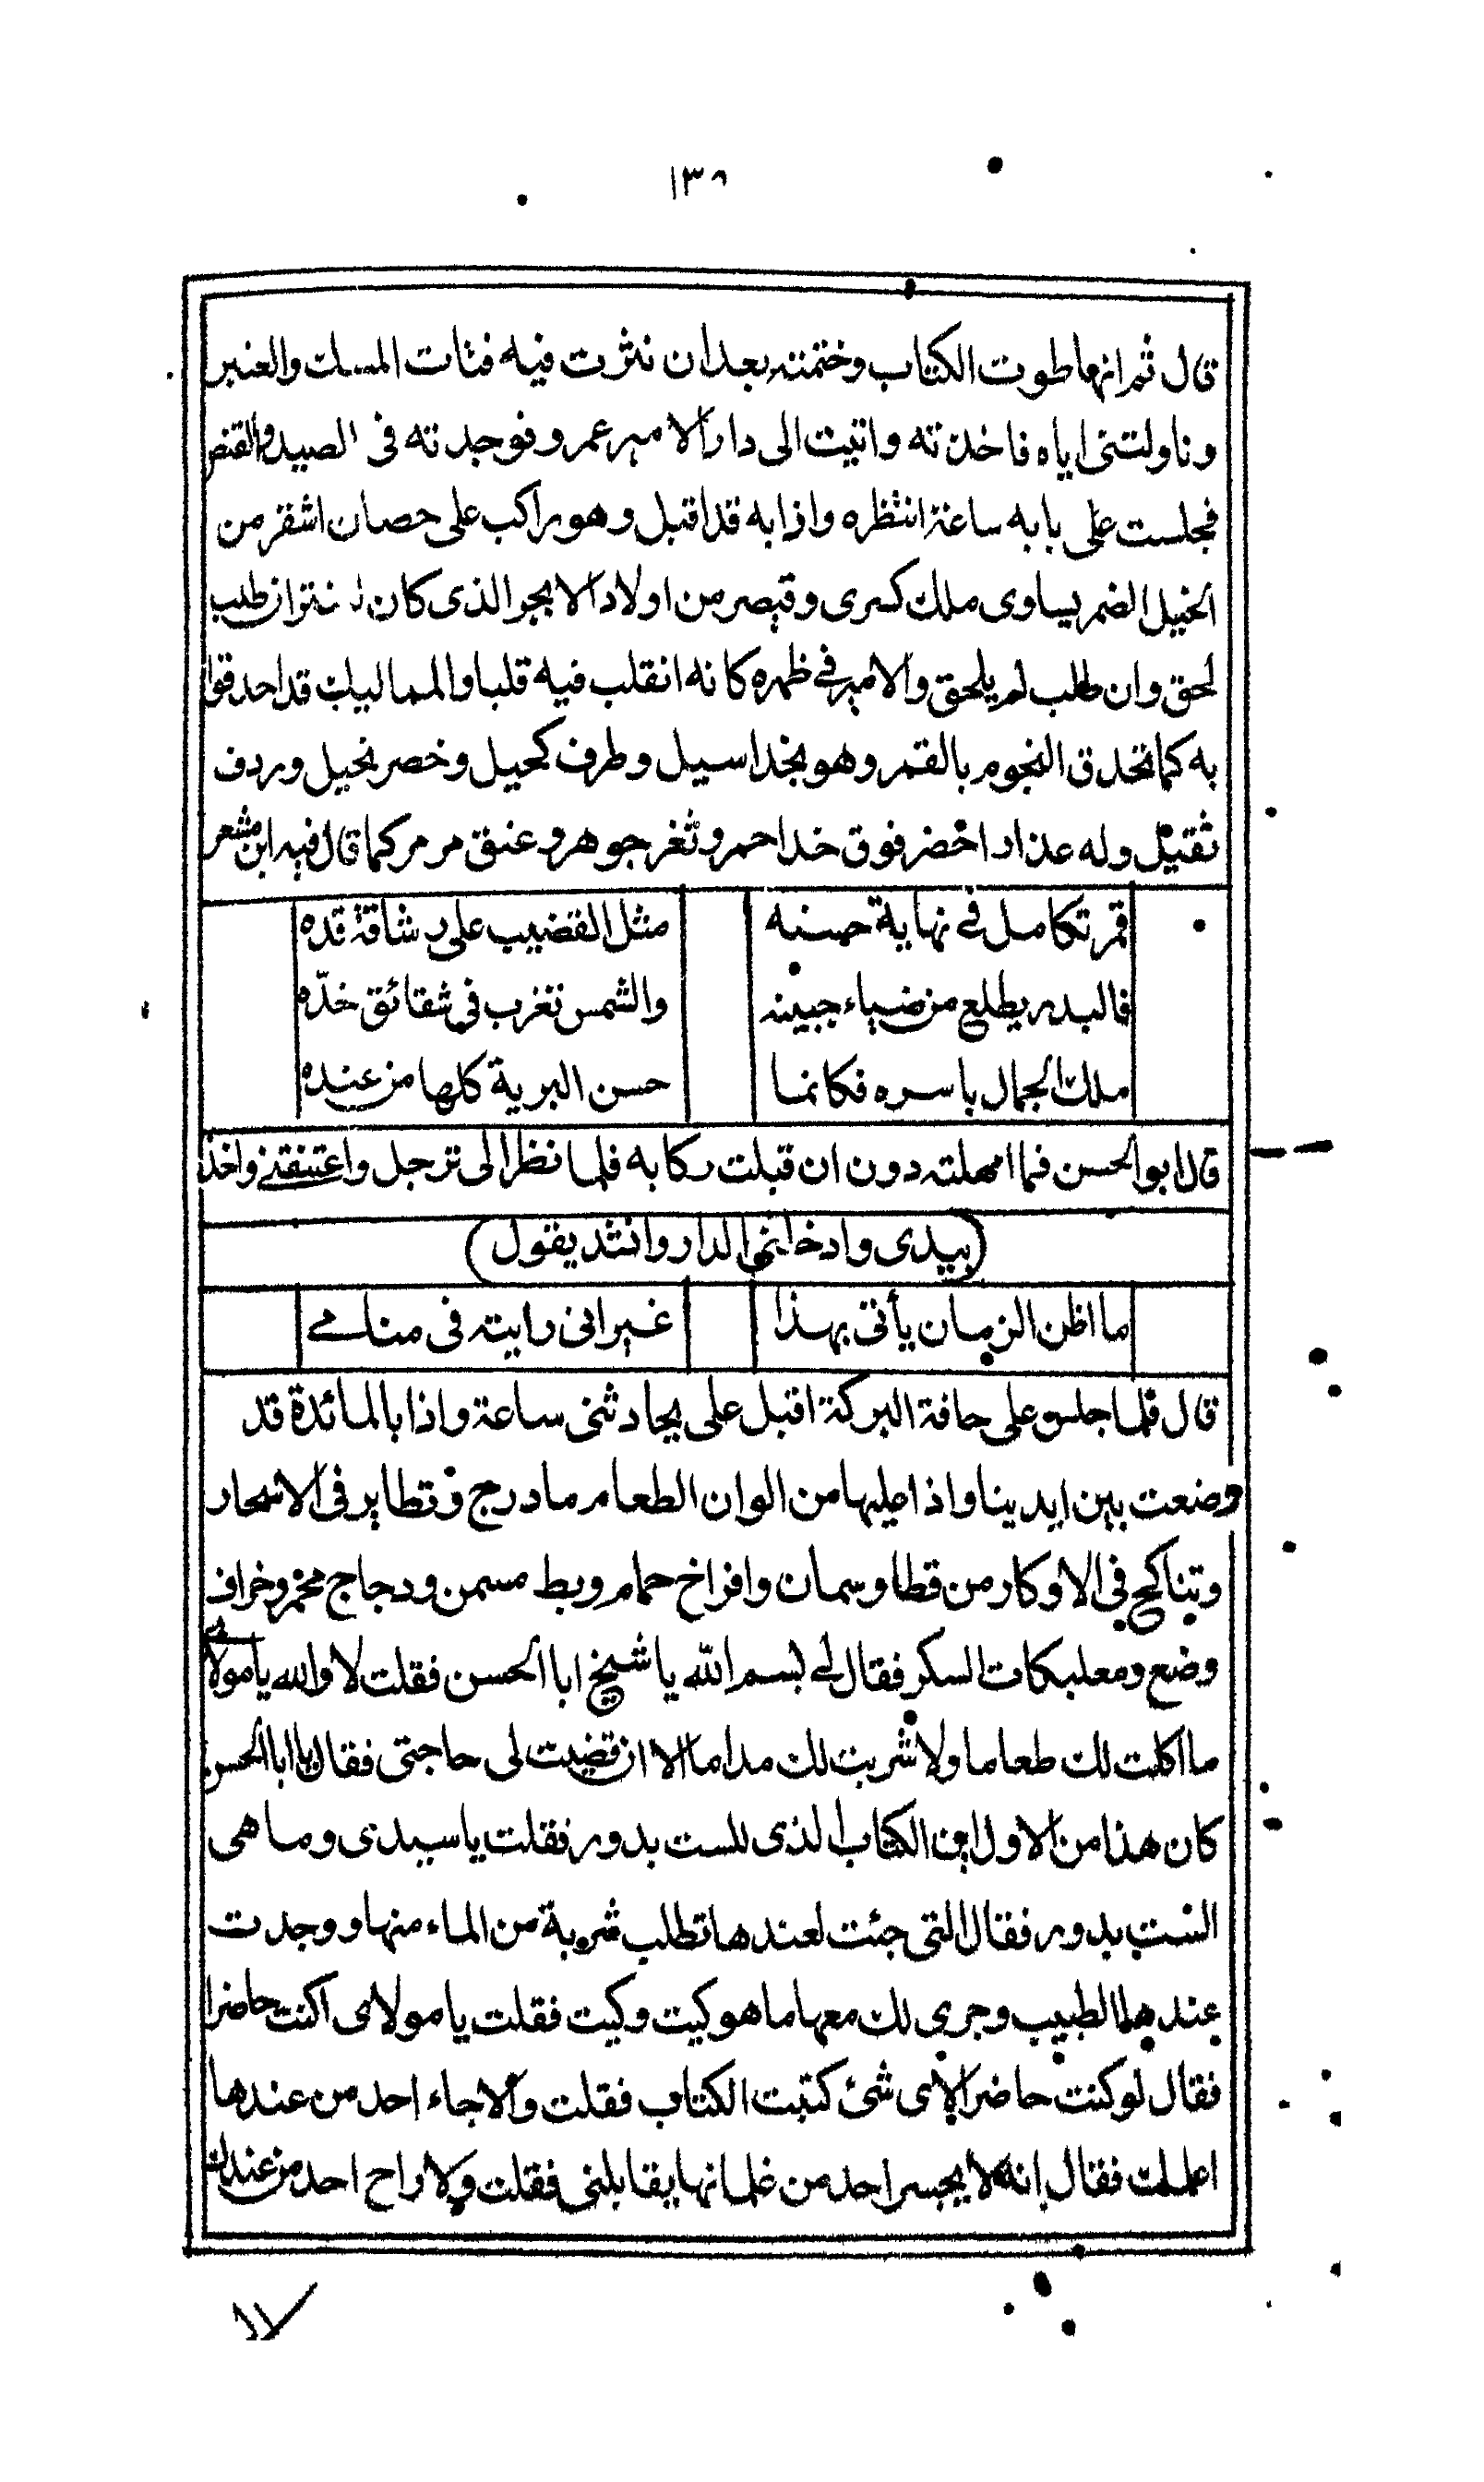 ١٣٨
قال ثم انها طوت الكتاب وختمته بعد ان نثرت فيه فتات المسك والعنبر
وناولتنى اياه فاخذته واتيت الى دار الامير عمرو فوجدته فى الصيد والقنص
فجلست على بابه ساعة انتظره واذا به قد اقبل وهو راكب على حصان اشقر من
الخيل الضمر يساوى ملك كسرى وقيصر من اولاد الابجر الذى كان لعنتر ان طلب
لحق وان طلب لم يلحق والامير فى ظهره كانه انقلب فيه قلبا والمماليك قد احدقوا
به كما تحدق النجوم بالقمر وهو بخد اسيل وطرف كحيل وخصر نحيل وردف
ثقيل وله عذار اخضر فوق خد احمر وثغر جوهر وعنق مرمر كما قال فيه ابن مشعر
قمر تكامل فى نهاية حسنه مثل القضيب على رشاقة قده
فالبدر يطلع من ضياء جبينه والشمس تغرب فى شقائق خدّه
ملك الجمال باسره فكانما حسن البرية كلها من عنده
قال ابو الحسن فما امهلته دون ان قبلت ركابه فلما نظر الى ترجل واعتنقنى واخذ
(بيدى وادخلنى الدار وانشد يقول)
ما اظن الزمان يأتى بهذا غير انى رايته فى منامى
قال فلما جلس على حافة البركة اقبل على يحادثنى ساعة واذا بالمائدة قد
وضعت بين ايدينا واذا عليها من الوان الطعام ما درج وتطاير فى الاسحار
وتناكح فى الاوكار من قطا وسمان وافراخ حمام وبط مسمن ودجاج محمر وخراف
وضع ومعلبكات السكر فقال لى بسم الله يا شيخ ابا الحسن فقلت لا والله يا مولاى
ما اكلت لك طعاما ولا شربت لك مداما الا ان قضيت لى حاجتى فقال يا ابا الحسن
كان هذا من الاول اين الكتاب الذى للست بدور فقلت يا سيدى وما هى
الست بدور فقال التى جئت لعندها تطلب شربة من الماء منها ووجدت
عندها الطبيب وجرى لك معها ما هو كيت وكيت فقلت يا مولاى اكنت حاضرا
فقال لو كنت حاضرا لاى شئ كتبت الكتاب فقلت والا جاء احد من عندها
اعلمك فقال انه لا يجسر احد من غلمانها يقابلنى فقلت ولا راح احد من عندك